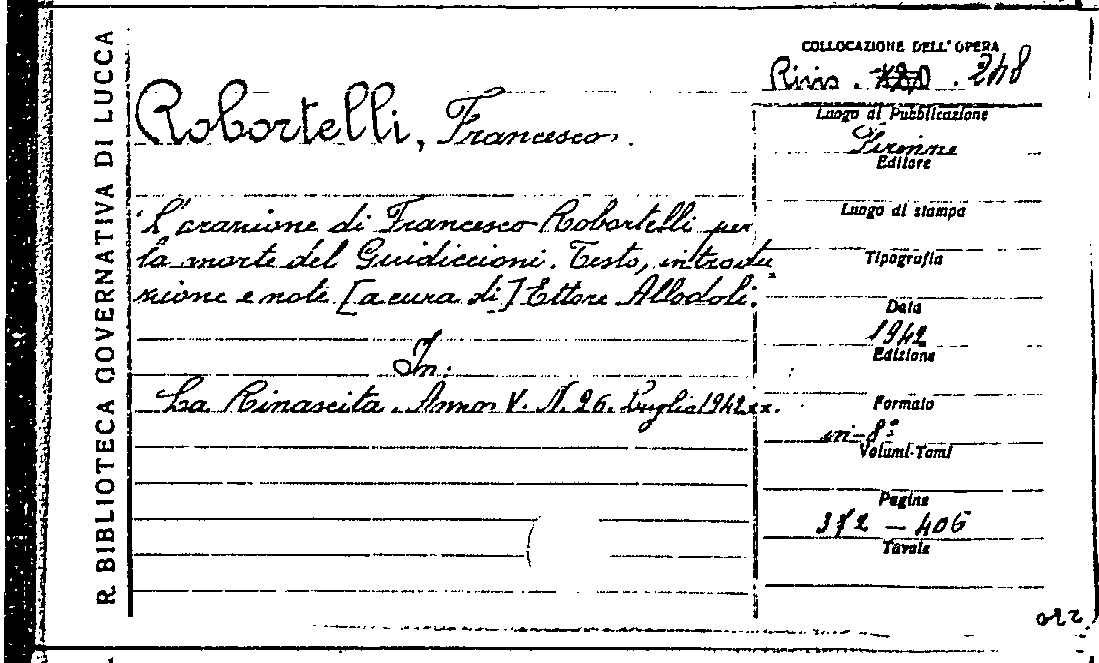 R. BIBLIOTECA GOVERNATIVA DI LUCCA
COLLOCAZIONE DELL'OPERA
Rivis. 248
Robortelli, Francesco.
Luogo di Pubblicazione
Firenze
Editore
Luogo di stampa
Tipografia
Data
1942
Edizione
Formato
in-8º
Volumi-Tomi
Pagine
372 - 406
Tavole
L'orazione di Francesco Robortelli per
la morte del Guidiccioni. Testo, introdu
zione e note [a cura di] Ettore Allodoli.
In:
La Rinascita. Anno V. N. 26. Luglio 1942 xx.